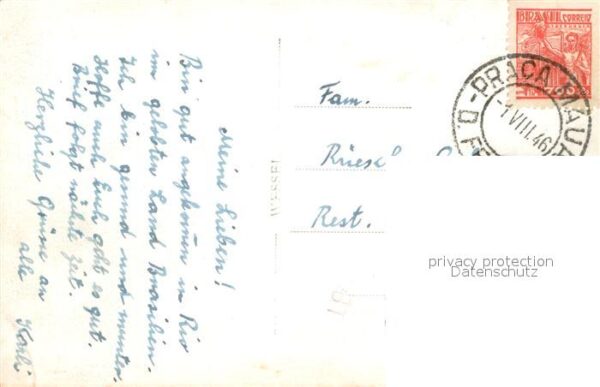 Meine Lieben!
Bin gut angekommen in Rio
im gelobten Land Brasilien.
Ich bin gesund und munter.
Hoffe auch Euch geht es gut.
Brief folgt nächste Zeit.
Herzliche Grüsse an
alle Karli
WESSEL
Fam.
Rüesch
Rest.
BRASIL CORREIO
PRAÇA MAUÁ
-1 VIII.46
D.F.
privacy protection
Datenschutz